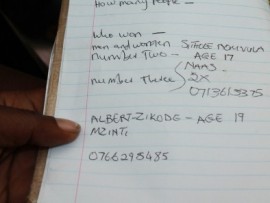 How many people —
Who won —
men and women SITHLE NGNVULA
number Two — AGE 17
NAAS.
number Three 2X
0713615375
ALBERT-ZIKODE - AGE 19
MZINTI
0766295485